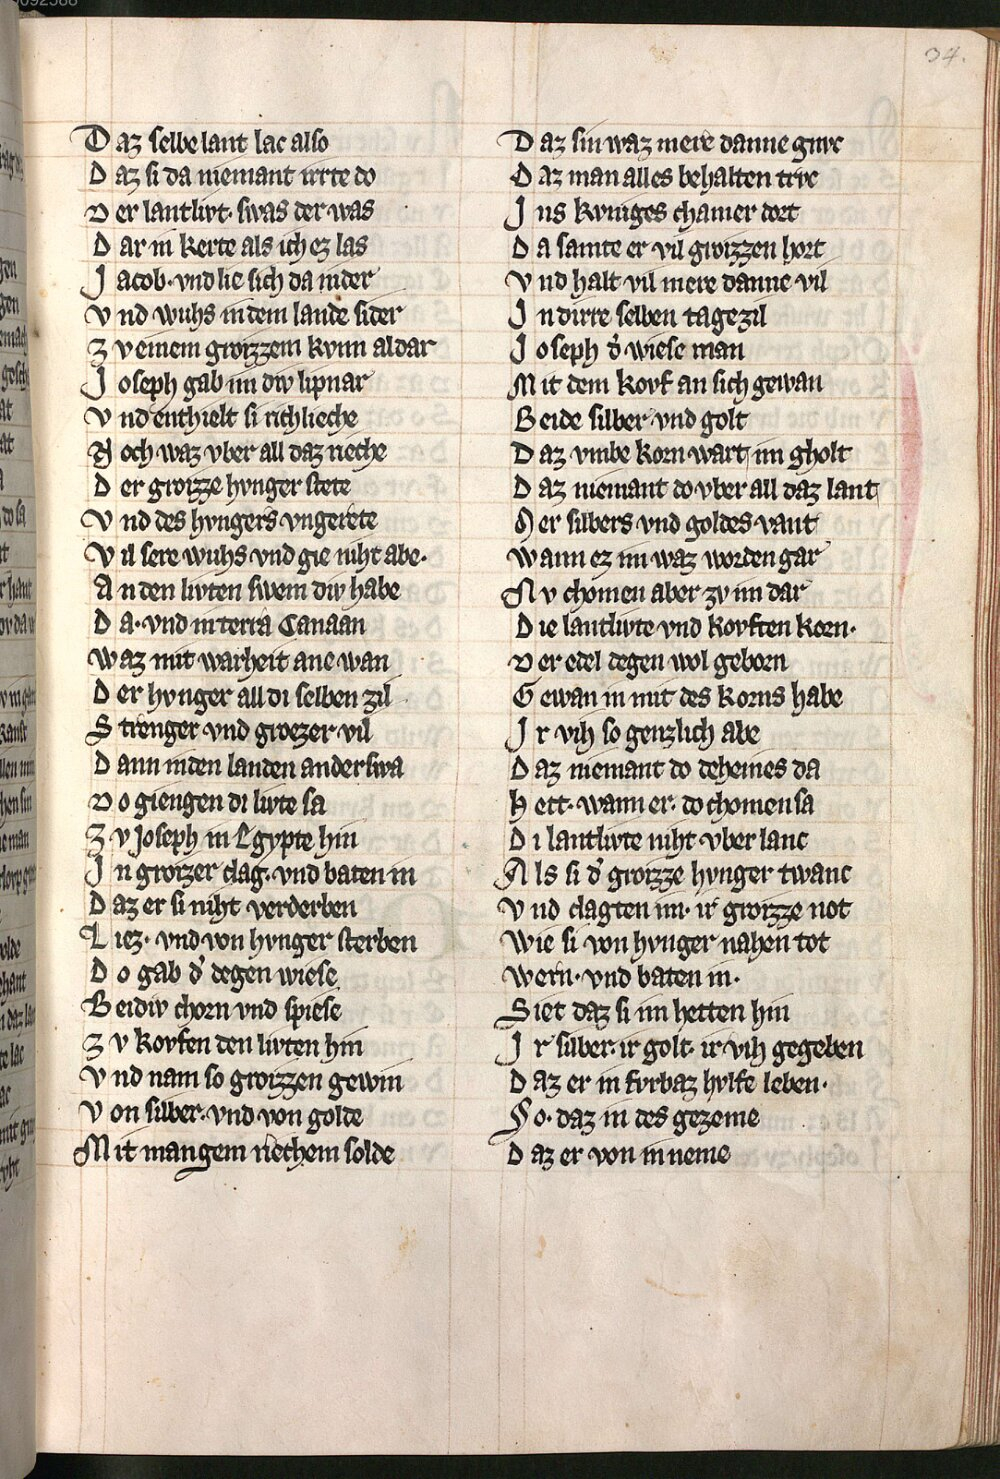 34.
Daz selbe lant lac also
Daz si da niemant irrte do
Der lantlivt· swas der was
Dar in kerte als ich ez las
Jacob· vnd lie sich da nider
Vnd wuhs in dem lande sider
Zv einem groizzem kvnn aldar
Joseph gab im div lipnar
Vnd enthielt si richlieche
Noch waz vber all daz rieche
Der groizze hvnger stete
Vnd des hvngers vngerete
Vil sere wuhs vnd gie niht abe·
An den livten swem div habe
Da· vnd in terra Canaan
Waz mit warheit ane wan
Der hvnger all di selben zil
Strenger vnd groezer vil
Dann in den landen anderswa
Do giengen di livte sa
Zv Joseph in Egypte hin
Jn groizer clag· vnd baten in
Daz er si niht verderben
Liez· vnd von hvnger sterben
Do gab d' degen wiese
Beidiv chorn vnd spiese
Zv kovfen den livten hin
Vnd nam so groizzen gewin
Von silber· vnd von golde
Mit mangem riechem solde
Daz sin waz mere danne gnvc
Daz man alles behalten trvc
Jns kvniges chamer dort
Da samte er vil groizzen hort
Vnd halt vil mere danne vil
Jn dirre selben tage zil
Joseph d' wiese man
Mit dem kovf an sich gewan
Beide silber vnd golt
Daz vmbe korn wart im gholt
Daz niemant do vber all daz lant
Mer silbers vnd goldes vant
Wann ez im waz worden gar
Nv chomen aber zv im dar
Die lantlivte vnd kovften korn·
Der edel degen wol geborn
Gewan in mit des korns habe
Jr vih so genzlich abe
Daz niemant do deheines da
Hett· wann er· do chomen sa
Di lantlivte niht vber lanc
Als si d' groizze hvnger twanc
Vnd clagten im· ir groizze not
Wie si von hvnger nahen tot
Wern· vnd baten in·
Siet daz si im hetten hin
Jr silber· ir golt· ir vih gegeben
Daz er in fvrbaz hvlfe leben·
So· daz in des gezeme
Daz er von in neme